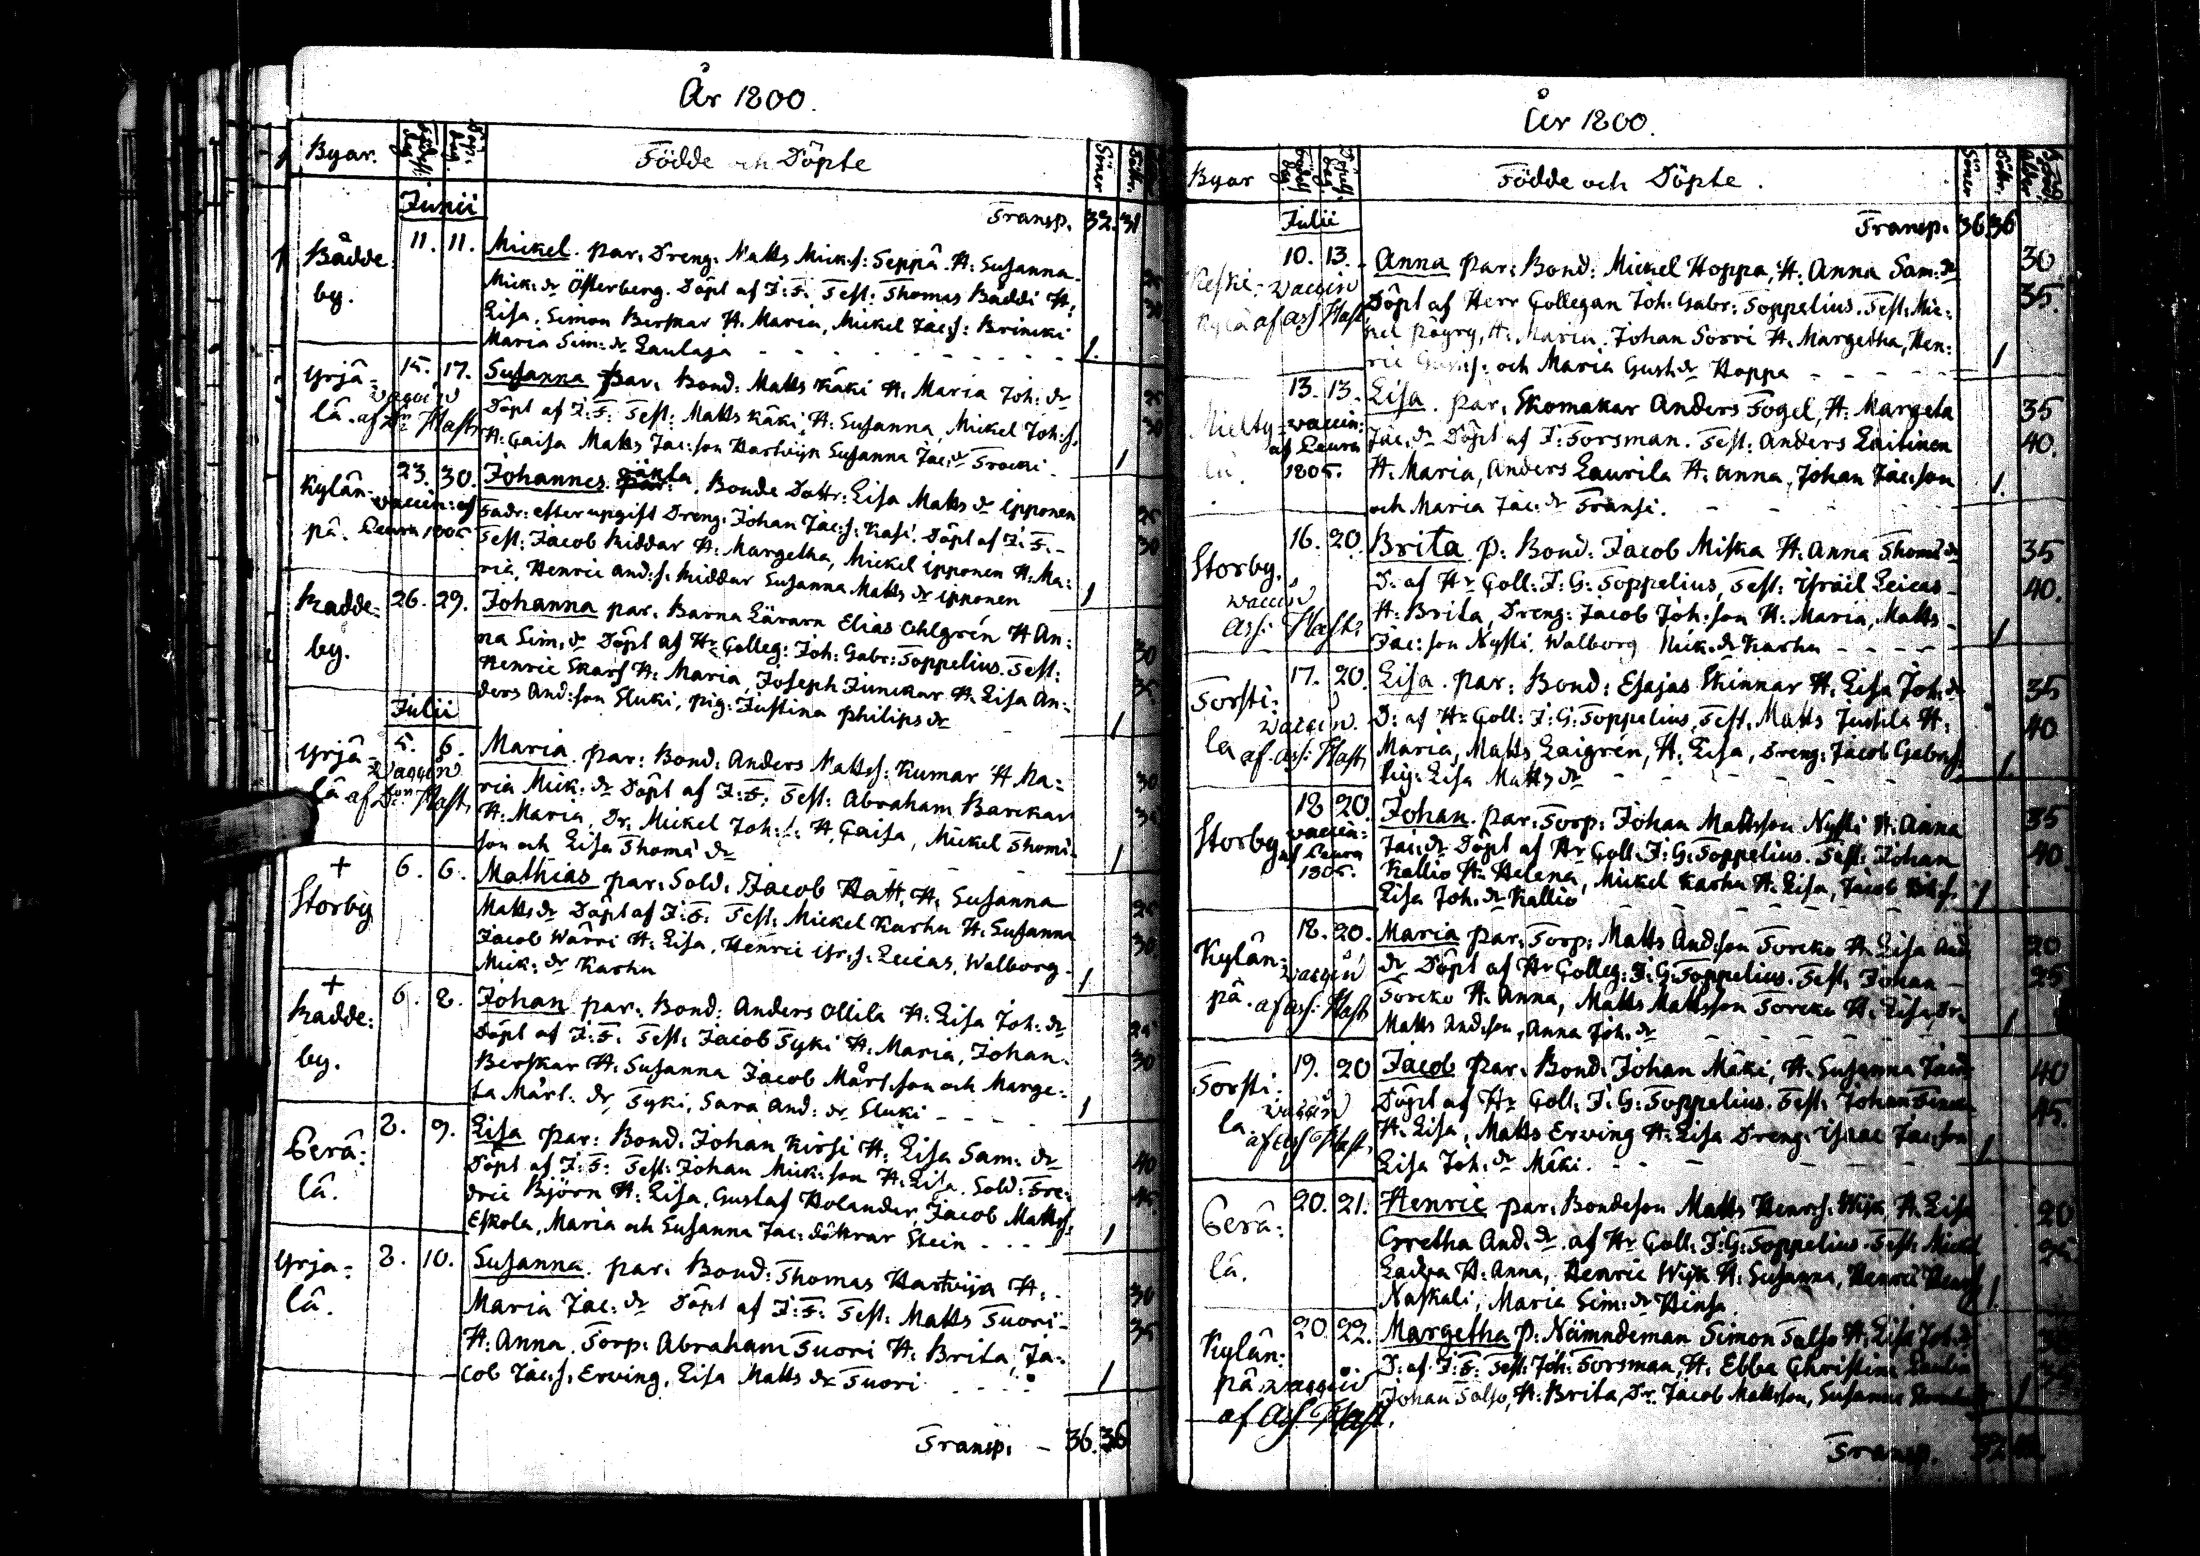 År 1800.
Byar.
Födelse dag
Döp: dag
Födde och Döpte
Söner
Döttr.
Junii
Transp. 32. 31
Bådde: by.
11. 11. Mickel. par: Dreng: Matts Mick:s: Seppä. H: Susanna
Mick: dr Österberg. Döpt af J: F: Test: Thomas Båddi H:
Lisa, Simon Berskar H: Maria, Mickel Jac:s: Brincki
Maria Sim: dr Laulaja 1.
Yrjä: lä.
vaccin af Dr Hast
15. 17. Susanna par: Bond: Matts Käki H: Maria Joh: dr
Döpt af J: F: Test: Matts Käki, H: Susanna, Mickel Joh:s.
H: Caisa Matts Jac:son Hartvijn Susanna Jac: dr 1
Kylän pä.
vaccin: af Leura 1805.
23. 30. Johannes oäkta, Bonde Dottr: Lisa Matts dr Ipponen
Fadr: efter upgift Dreng: Johan Jac:s: Kasi. Döpt af J: F:
Test: Jacob Kiddar H: Margetha, Mickel Ipponen H: Ma:
ria, Henric And:s: Kiddar Susanna Matts dr Ipponen 1
Kadde: by.
26. 29. Johanna par: Barna Läraren Elias Ohlgrén H An:
na Sim: dr Döpt af Hr Colleg: Joh: Gabr: Toppelius. Test:
Henric Skarf H: Maria, Joseph Junckar H: Lisa An:
ders And:son Sluki, pig: Justina Philips dr 1
Julii
Yrjä: lä
Vaccin af Don Hast
5. 6. Maria par: Bond: Anders Matts: Kumar H Ma:
ria Mick: dr Döpt af J: F: Test: Abraham Barckar
H: Maria, Dr: Mickel Joh:s: H, Caisa, Mickel Thomæ
son och Lisa Thomæ dr 1
+
Storby
6. 6. Mathias par: Sold: Jacob Hatt, H: Susanna
Matts dr Döpt af J: F: Test: Mickel Karhu H: Susanna
Jacob Wärri H: Lisa, Henric Isr:s: Leicas, Walborg
Mick: dr Karhu 1
+
Kadde: by.
6. 8. Johan par: Bond: Anders Ollila H: Lisa Joh: dr
Döpt af J: F: Test: Jacob Tyki H: Maria, Johan
Berskar H: Susanna Jacob Mårt:son och Marge:
ta Mårt: dr Tyki, Sara And: dr Sluki 1
Perä: lä.
8. 9. Lisa par: Bond: Johan Kirsi H: Lisa Sam: dr
Döpt af J: F: Test: Johan Mick:son H: Lisa. Sold: Fre:
dric Björn H: Lisa, Gustaf Holander, Jacob Matts:
Eskola, Maria och Susanna Jac: döttrar Stein 1
Yrjä: lä.
8. 10. Susanna. par: Bond: Thomas Hartvijn H:
Maria Jac: dr Döpt af J: F: Test: Matts Tuori
H: Anna, Torp: Abraham Tuori H: Brita, Ja:
cob Jac:s: Erving, Lisa Matts dr Tuori 1
Transp: 36. 36
År 1800.
Byar
Födde och Döpte.
Söner
Döttr.
Julii
Transp. 36 36
Keski: Kylä
vaccin af Ass Hast
10. 13. Anna par: Bond: Mickel Hoppa, H: Anna Sam: dr 30
Döpt af Herr Collegan Joh: Gabr: Toppelius. Test: Mic: 35.
kel Pöyry, H: Maria, Johan Sorri H: Margetha, Hen:
ric Gust:s: och Maria Gust: dr Hoppa 1
Mielty: lä.
vaccin: af Leura 1805.
13. 13. Lisa. par: Skomakar Anders Fogel, H: Margeta 35
Jac: dr Döpt af J: Forsman. Test: Anders Laitinen 40.
H: Maria, Anders Laurila H: Anna, Johan Jac:son 1.
och Maria Jac: dr Fransi.
Storby.
vaccin Ass: Hast:
16. 20. Brita p: Bond: Jacob Miska H: Anna Thomæ dr 35
D: af Hr Coll: J: G: Toppelius, Test: Israel Leicas 40.
H: Brita, Dreng: Jacob Joh:son H: Maria, Matts
Jac:son Nysti, Walborg Mick: dr Karhu 1
Torsti: la
vaccin. af Ass: Hast
17. 20. Lisa. par: Bond: Esajas Skinnar H: Lisa Joh: dr 35
D: af Hr Coll: J: G: Toppelius, Test: Matts Jussila H: 40
Maria, Matts Laigrén, H: Lisa, Dreng: Jacob Gabr:s:
Pig: Lisa Matts dr 1.
Storby
vaccin: af Leura 1805.
18 20. Johan. par: Torp: Johan Mattsson Nysti H: Anna 35
Jac: dr Döpt af Hr Coll: J: G: Toppelius. Test: Johan 40
Kallio H: Helena, Mickel Karhu H: Lisa, Jacob
Lisa Joh: dr Kallio 1
Kylän: pä.
vaccin af Ass: Hast
18. 20. Maria par: Torp: Matts And:son Torcko H: Lisa And: 20
dr Döpt af Hr Colleg: J: G: Toppelius. Test: Johan 25
Torcko H: Anna, Matts Mattsson Torcko H: Lisa, Dr:
Matts And:son, Anna Joh: dr 1
Torsti: la
vaccin af Ass Hast
19. 20 Jacob par: Bond: Johan Mäki, H: Susanna Jac: dr 40
Döpt af Hr Coll: J: G: Toppelius. Test: Johan 45.
H: Lisa, Matts Erving H: Lisa Dreng: Isaac Jac:son
Lisa Joh: dr Mäki. 1
Perä: lä.
20. 21. Henric par: Bondeson Matts Henr:s: Wijk H: Lisa 20
Gretha And: dr. af Hr Coll: J: G: Toppelius. Test: Mickel 25
Ladva H: Anna, Henric Wijk H: Susanna, Henric
Naskali, Maria Sim: dr Hinsa. 1.
Kylän: pä.
vaccin af Ass Hast.
20. 22. Margetha p: Nämndeman Simon Salso H: Lisa Joh: dr
D: af J: F: Test: Joh: Forsman, H: Ebba Christina
Johan Salso, H: Brita, Dr: Jacob Mattsson, Susanna 1
Transp.